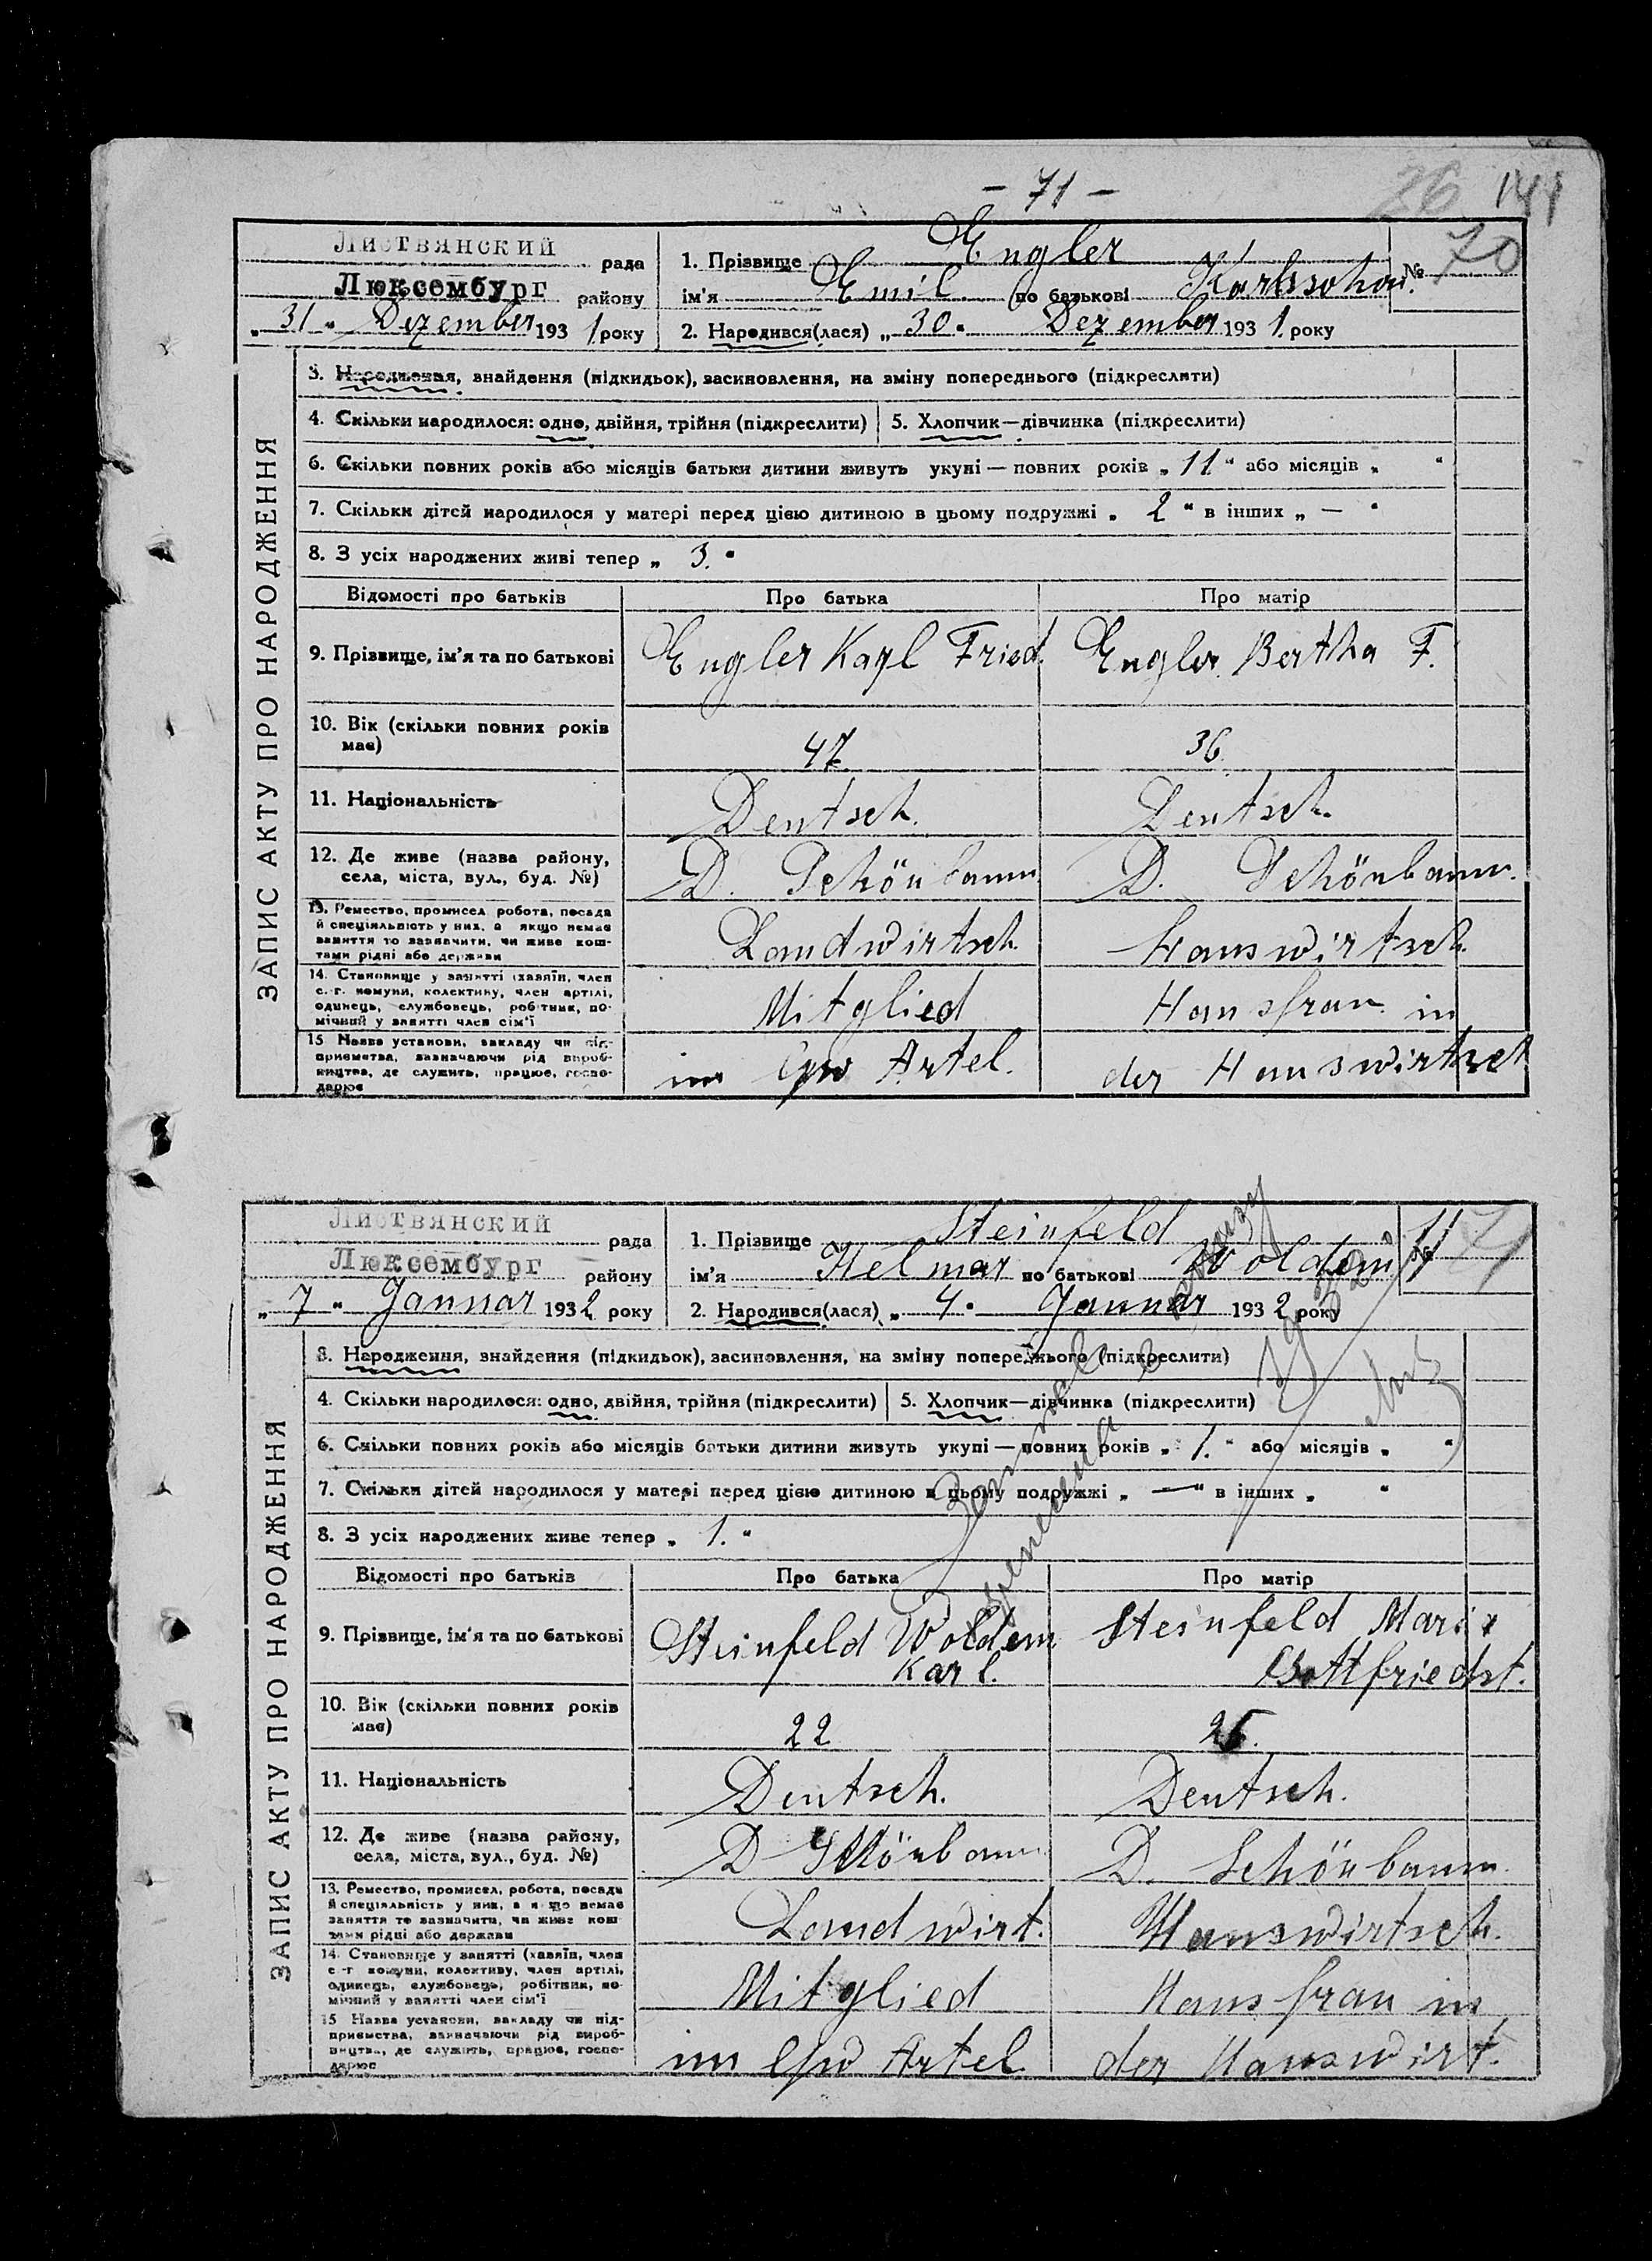 - 71 -
26 141
Листвянский рада
Люксембург району
„ 31 " Dezember 1931 року
1. Прізвище Engler
ім'я Emil по батькові Karlssohn.
№ 70
2. Народився(лася) „ 30 " Dezember 1931. року
ЗАПИС АКТУ ПРО НАРОДЖЕННЯ
3. Народження, знайдення (підкидьок), засиновлення, на зміну попереднього (підкреслити)
4. Скільки народилося: одно, двійня, трійня (підкреслити) 5. Хлопчик—дівчинка (підкреслити)
6. Скільки повних років або місяців батьки дитини живуть укупі — повних років „ 11 " або місяців „ "
7. Скільки дітей народилося у матері перед цією дитиною в цьому подружжі „ 2 " в інших „ — "
8. З усіх народжених живі тепер „ 3. "
Відомості про батьків Про батька Про матір
9. Прізвище, ім'я та по батькові Engler Karl Fried. Engler Bertha F.
10. Вік (скільки повних років має) 47. 36.
11. Національність Deutsch. Deutsch.
12. Де живе (назва району, села, міста, вул., буд. №) D. Schönbaum D. Schönbaum.
13. Ремество, промисел, робота, посада й спеціяльність у них, а якщо немає заняття то зазначити, чи живе коштами рідні або держави Landwirtsch. Hauswirtsch.
14. Становище у занятті (хазяїн, член с.-г. комуни, колективу, член артілі, одинець, службовець, робітник, помічний у занятті член сім'ї Mitglied Hausfrau in
15 Назва установи, закладу чи підприємства, зазначаючи рід виробництва, де служить, працює, господарює im Artel. der Hauswirtsch
Листвянский рада
Люксембург району
„ 7 " Januar 1932 року
1. Прізвище Steinfeld
ім'я Helmar по батькові Woldem
№ 71
2. Народився(лася) „ 4. " Januar 1932 року
ЗАПИС АКТУ ПРО НАРОДЖЕННЯ
3. Народження, знайдення (підкидьок), засиновлення, на зміну попереднього (підкреслити)
4. Скільки народилося: одно, двійня, трійня (підкреслити) 5. Хлопчик—дівчинка (підкреслити)
6. Скільки повних років або місяців батьки дитини живуть укупі — повних років „ 1. " або місяців „ "
7. Скільки дітей народилося у матері перед цією дитиною в цьому подружжі „ — " в інших „ "
8. З усіх народжених живе тепер „ 1. "
Відомості про батьків Про батька Про матір
9. Прізвище, ім'я та по батькові Steinfeld Woldem Karl. Steinfeld Maria Gottfriedst.
10. Вік (скільки повних років має) 22
11. Національність Deutsch. Deutsch.
12. Де живе (назва району, села, міста, вул., буд. №) D Schönbaum D. Schönbaum.
13. Ремество, промисел, робота, посада й спеціяльність у них, а якщо немає заняття то зазначити, чи живе коштами рідні або держави Landwirt. Hauswirtsch.
14. Становище у занятті (хазяїн, член с.-г. комуни, колективу, член артілі, одинець, службовець, робітник, помічний у занятті член сім'ї Mitglied Hausfrau in
15 Назва установи, закладу чи підприємства, зазначаючи рід виробництва, де служить, працює, господарює im Artel der Hauswirt.